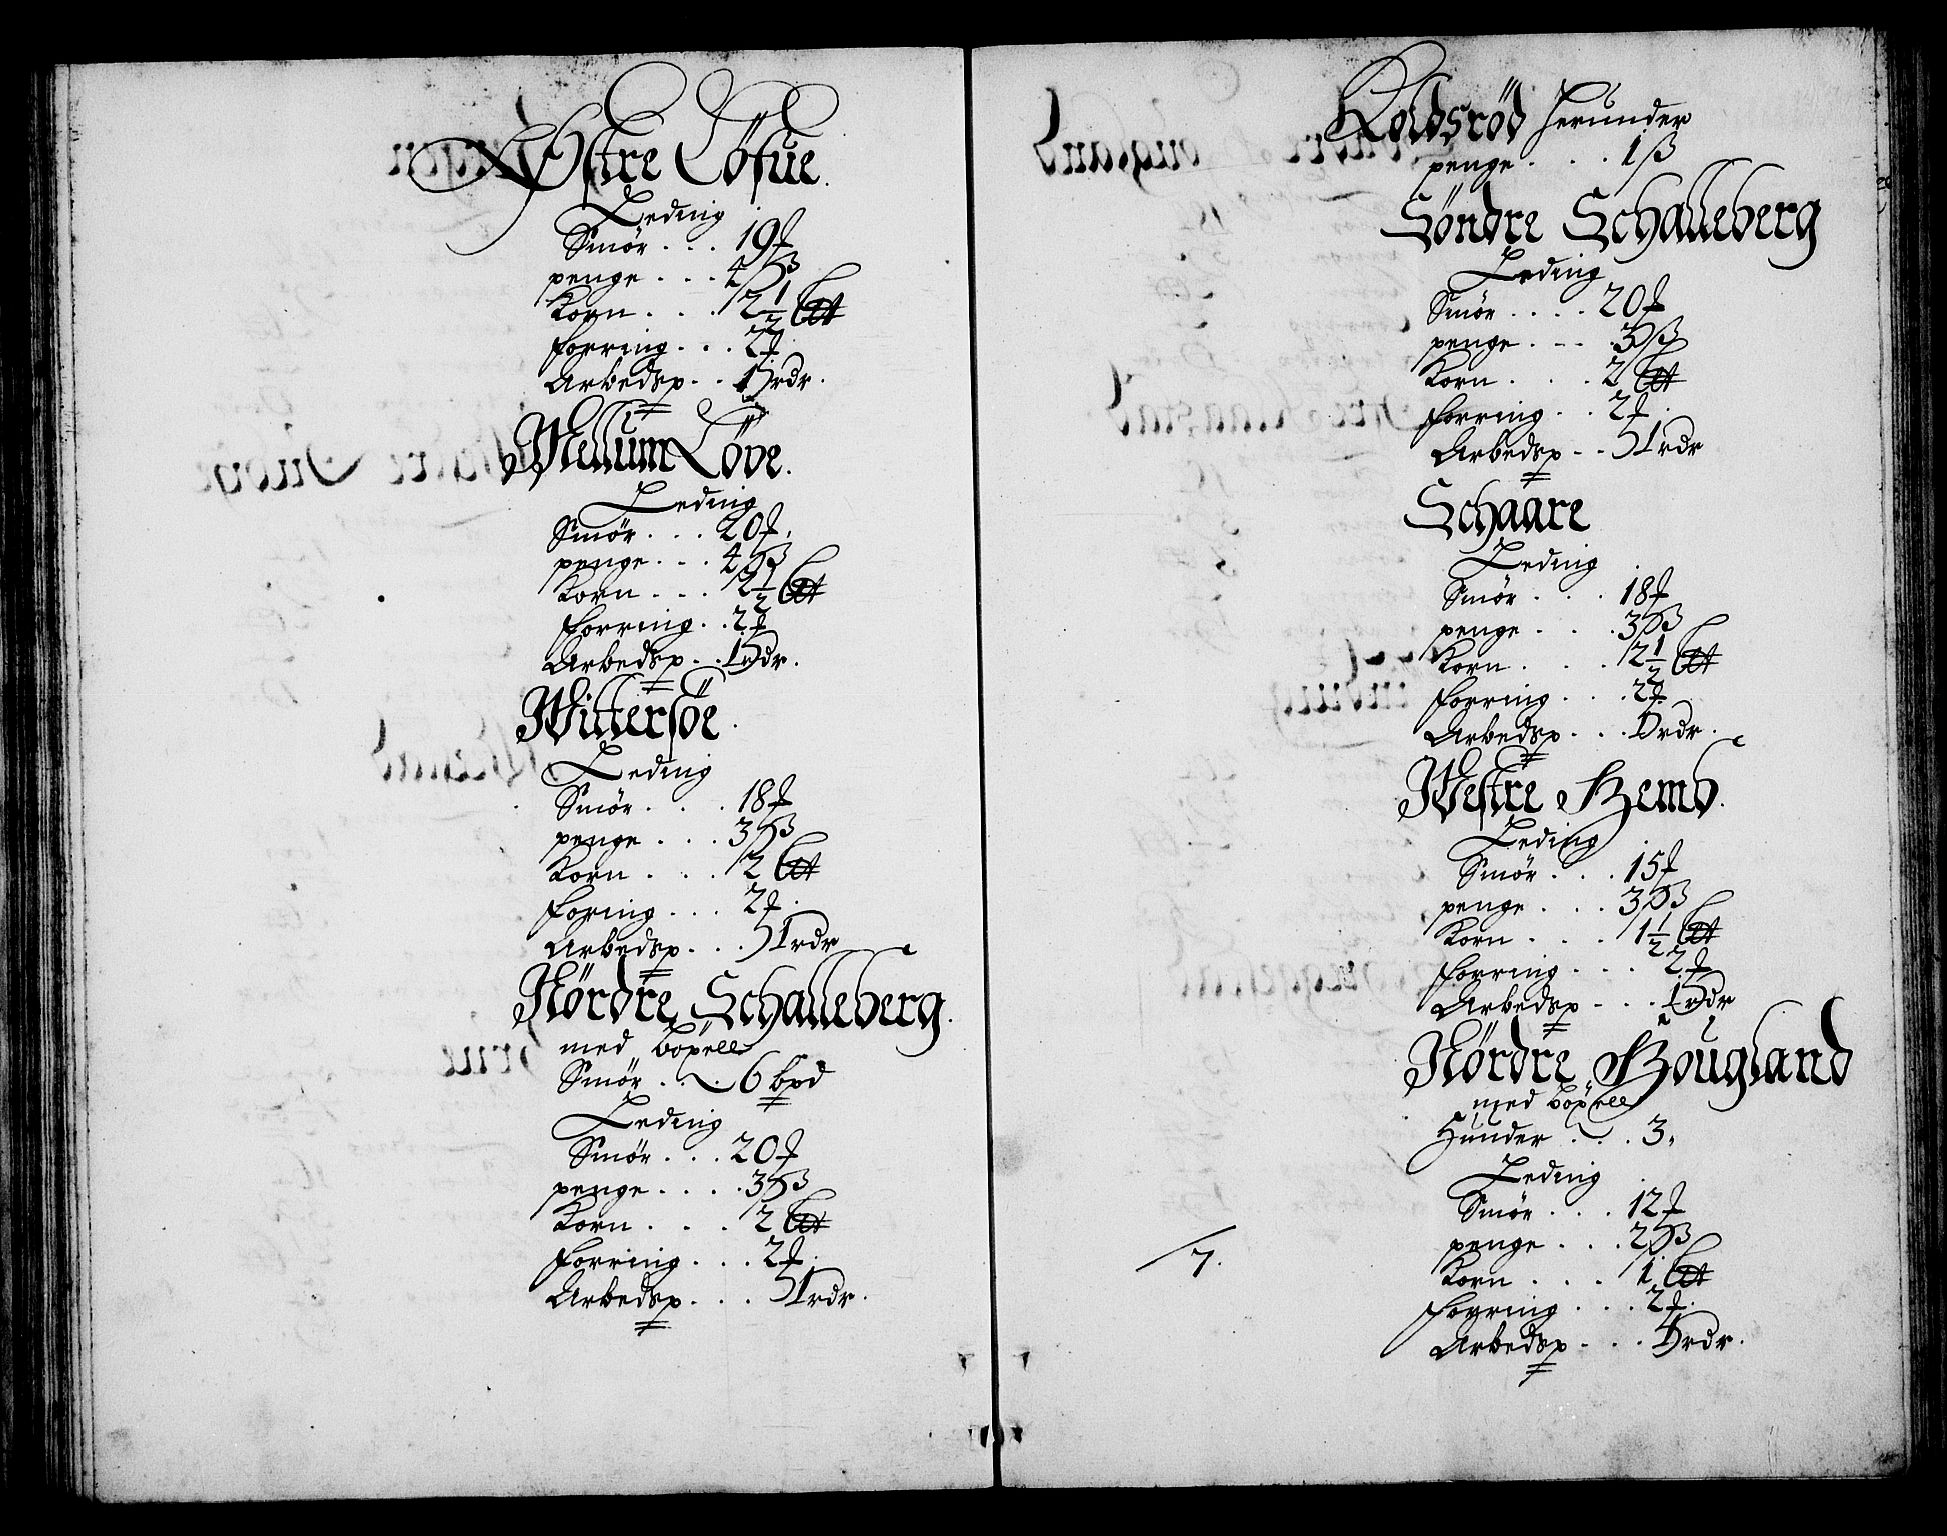 Østre Löfue.
Leding
Smör . . . 19 ℔
penge . . . 4 ß
Korn . . . . 2½ Lett
forring . . . 2 ℔.
Arbedsp. . . 1 rdr.
Mellum Löve.
Leding
Smör . . . 20 ℔.
penge . . . 4 ß
Korn . . . 2½ Lett
forring . . 2 ℔
Arbedsp. . . 1 rdr.
Wittersöe.
Leding
Smör . . . . 18 ℔
penge . . . 3 ß
Korn . . . . 2 Lett
foring . . . 2 ℔.
Arbedsp. . . . 1 rdr
Nördre Schalleberg.
med böxell
Smör . . . 6 bpd
Leding
Smör . . . 20 ℔
penge . . . . . 3 ß
Korn . . . . 2 Lett
forring . . . 2 ℔.
Arbedsp. . . . 1 rdr.
Koldsröd herunder
penge . . . . 1 ß
Söndre Schalleberg
Leding
Smör . . . . 20 ℔
penge . . . . 3 ß
Korn . . . . 2 Lett
forring . . 2 ℔.
Arbedsp . . 1 rdr
Schaare
Leding
Smör . . . 18 ℔
penge . . . . 3 ß
Korn . . . . 2½ Lett
forring . . . . 2 ℔
Arbedsp . . . 1 rdr.
Westre Hemb.
Leding
Smör . . . . 15 ℔
penge . . . . 3 ß
Korn . . . . 1½ Lett
forring . . . 2 ℔
Arbedsp . . . 1 rdr
Nördre Hougland
med böxell
Hunder . . . 3.
Leding
Smör . . . . 12 ℔
penge . . . . 2 ß
Korn . . . . 1 Lett
forring . . . . 2 ℔.
Arbedsp . . . 1 rdr.
/7.